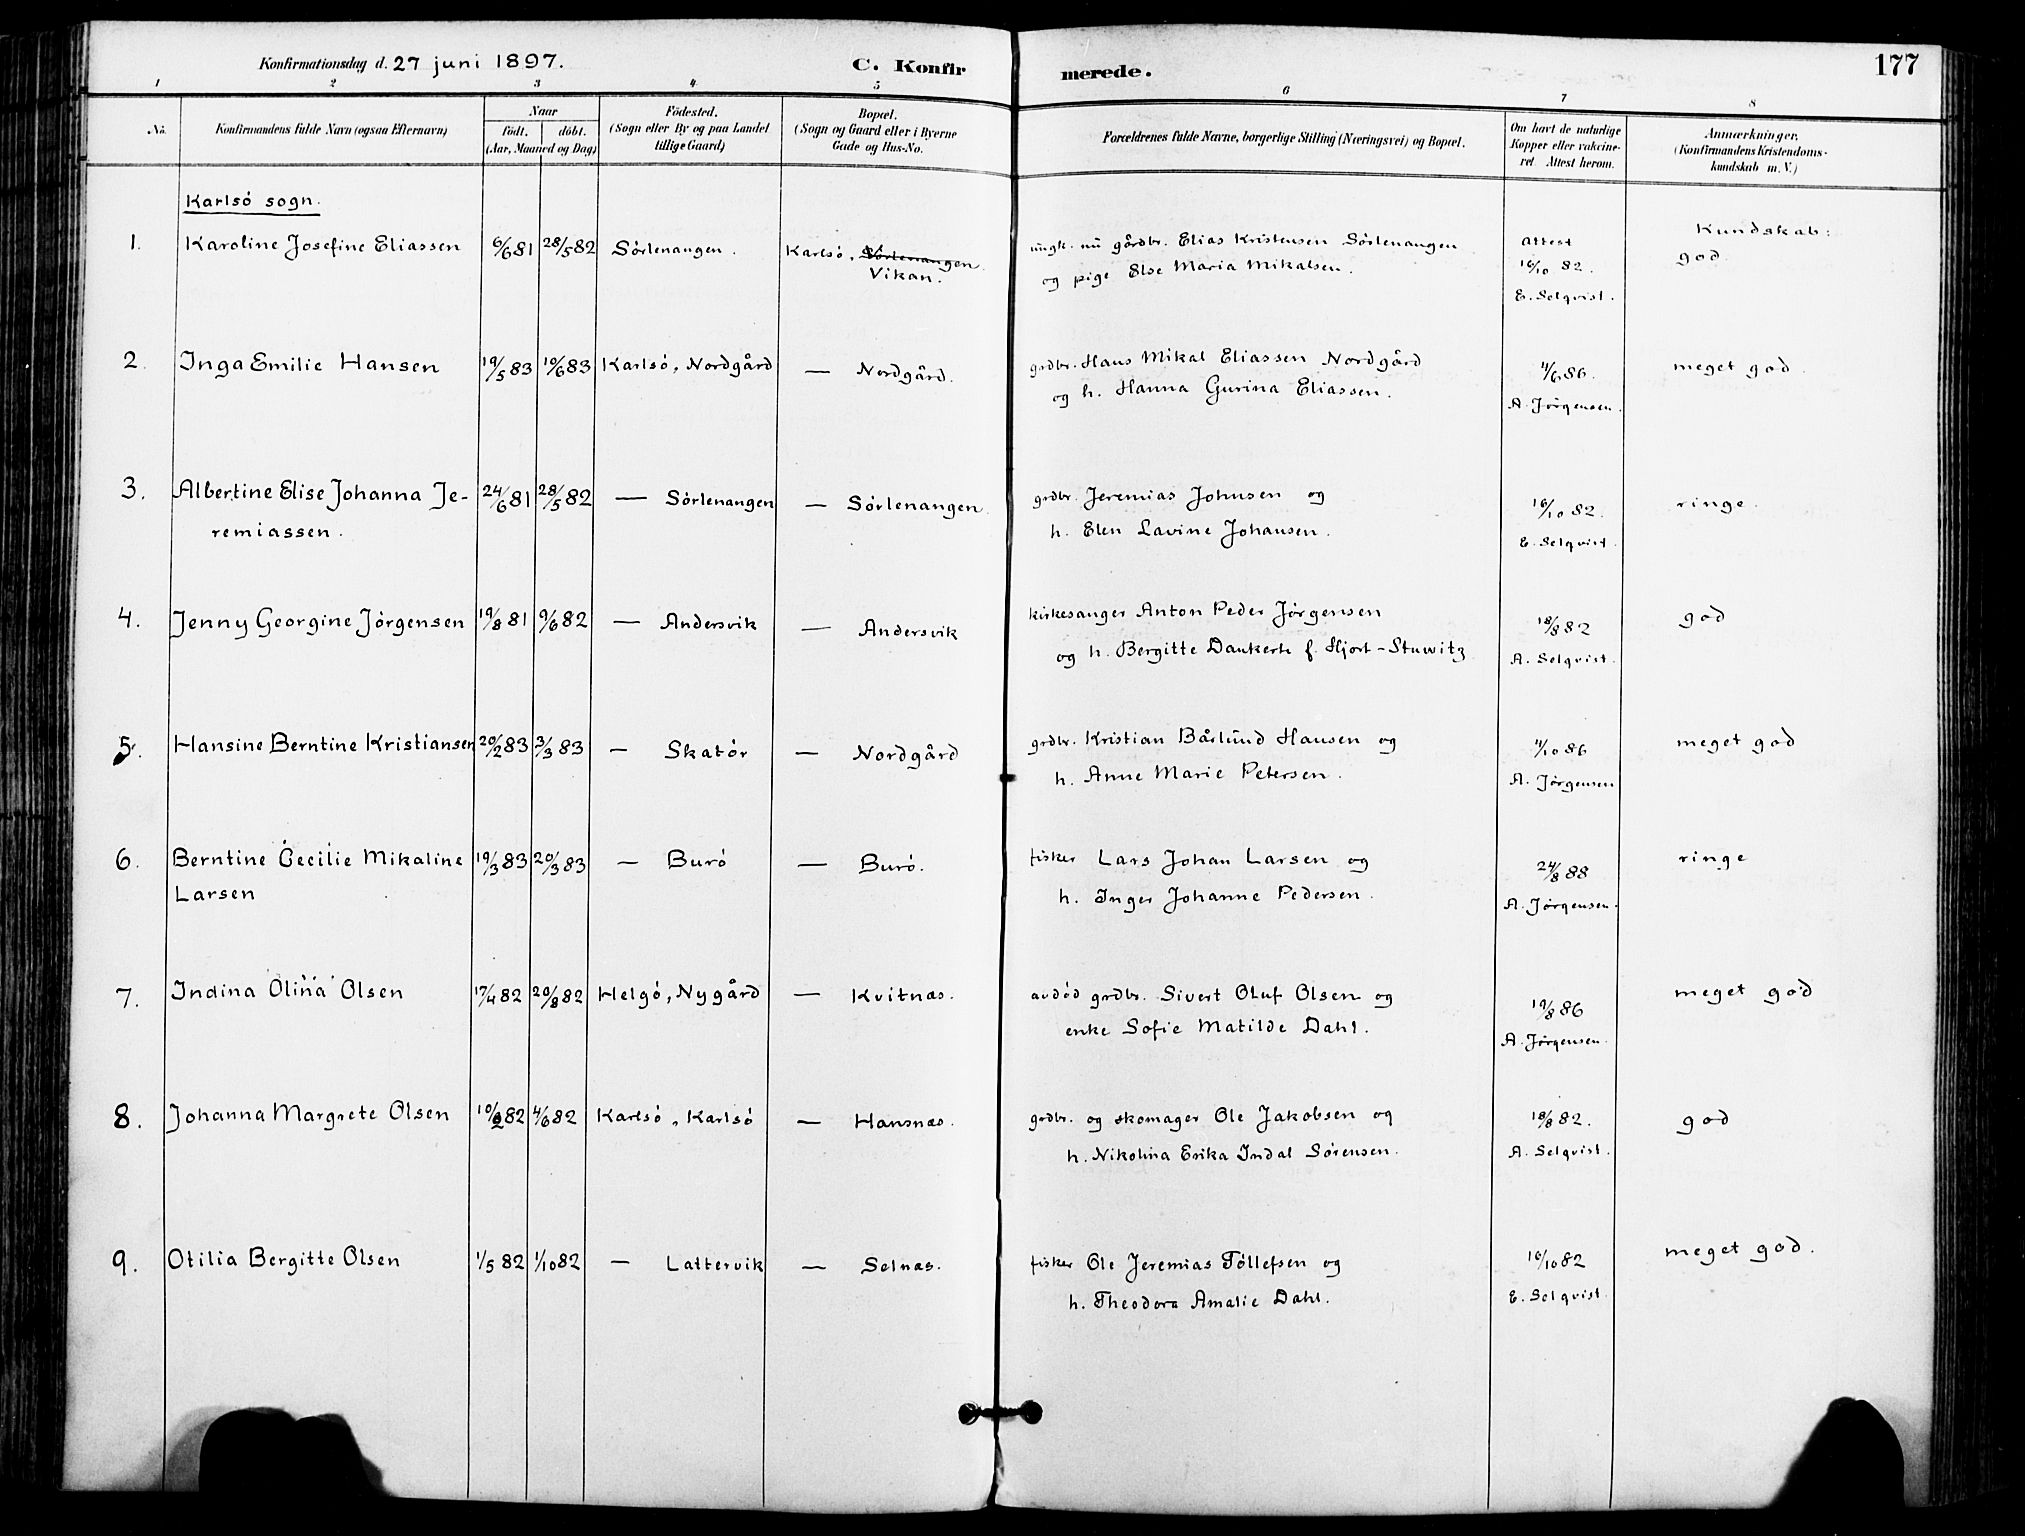 Konfirmationsdag d. 27 juni 1897.
C. Konfirmerede.
177
1 2 3 4 5 6 7 8
No.
Konfirmandens fulde Navn (ogsaa Efternavn)
Naar
födt. döbt.
(Aar, Maaned og Dag)
Födested.
(Sogn eller By og paa Landet
tillige Gaard)
Bopæl.
(Sogn og Gaard eller i Byerne
Gade og Hus-No.
Forældrenes fulde Navne, borgerlige Stilling (Næringsvei) og Bopæl.
Om havt de naturlige
Kopper eller vakcine-
ret Attest herom.
Anmærkninger,
(Konfirmandens Kristendoms-
kundskab m. V.)
Karlsö sogn.
1. Karoline Josefine Eliassen 6/6 81 28/5 82 Sörlenangen. Karlsö, Sörlenangen.
Vikan.
ungk. nu gårdbr. Elias Kristensen Sörlenangen
og pige Else Maria Mikalsen.
Attest
16/10 82.
E. Selqvist.
Kundskab:
god.
2. Inga Emilie Hansen 19/5 83 10/6 83 Karlsö, Nordgård — Nordgård.
grdbr. Hans Mikal Eliassen Nordgård
og h. Hanna Gurina Eliassen.
11/6 86.
A. Jörgensen.
meget god.
3. Albertine Elise Johanna Je-
remiassen.
24/6 81 28/5 82 — Sörlenangen — Sörlenangen.
grdbr. Jeremias Johnsen og
h. Elen Lavine Johansen.
16/10 82.
E. Selqvist.
ringe.
4. Jenny Georgine Jörgensen 19/8 81 9/6 82 — Andersvik — Andersvik
kirkesanger Anton Peder Jörgensen
og h. Bergitte Dankerts f. Hjort-Stuwitz
18/8 82
A. Selqvist.
god
5. Hansine Berntine Kristiansen 20/2 83 3/3 83 — Skatör — Nordgård
grdbr. Kristian Bårlund Hansen og
h. Anne Marie Petersen.
11/10 86
A. Jörgensen
meget god
6. Berntine Cecilie Mikaline
Larsen
19/3 83 20/3 83 — Burö — Burö.
fisker Lars Johan Larsen og
h. Inger Johanne Pedersen.
24/8 88
A. Jörgensen.
ringe
7. Indina Olina Olsen 17/4 82 20/8 82 Helgö, Nygård — Kvitnæs.
avdöd grdbr. Sivert Oluf Olsen og
enke Sofie Matilde Dahl.
19/8 86
A. Jörgensen.
meget god
8. Johanna Margrete Olsen 10/2 82 4/6 82 Karlsö, Karlsö — Hansnæs.
grdbr. og skomager Ole Jakobsen og
h. Nikolina Erika Indal Sörensen.
18/8 82.
A. Selqvist.
god
9. Otilia Bergitte Olsen 1/5 82 1/10 82 — Lattervik — Selnæs.
fisker Ole Jeremias Töllefsen og
h. Theodora Amalie Dahl.
16/10 82
E. Selqvist.
meget god.